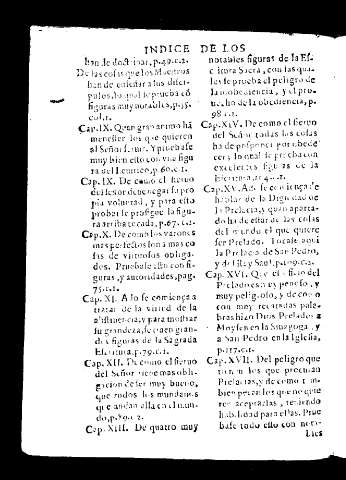 INDICE DE LOS
han de doctrinar, p.49.c.2.
De las cosas que los Maestros
han de enseñar a sus disci-
pulos, lo qual se prueba cõ
figuras muy notables, p.55.
col.1.
Cap. IX. Quan gran animo hã
menester los que quieren
al Señor servir. Y pruebase
muy bien esto con vna figu
ra del Levitico, p.60.c.1.
Cap. IX. De como el siervo
del Señor deue negar su pro
pia voluntad, y para esto
probar se prosigue la figu-
ra arriba tocada, p.67.c.2.
Cap. X. De como los varones
mas perfectos son a mas co
sas de virtuosos obliga-
dos. Pruebase esto con fi-
guras, y autoridades, pag.
75.c.2.
Cap. XI. A lo se comiença a
tratar de la virtud de la
abstinencia, y para mostrar
su grandeza, se traen gran-
des figuras de la Sagrada
Escritura. p.79.c.1.
Cap. XII. De como el siervo
del Señor tiene mas obli-
gacion de ser muy bueno,
que todos los mundanos
que andan allà en el mun-
do, p.89.c.2.
Cap. XIII. De quatro muy
notables figuras de la Es-
critura Sacra, con las qua-
les se prueba el peligro de
la inobediencia, y el pro-
uecho de la obediencia, p.
98.c.1.
Cap. XIV. De como el siervo
del Señor todas las cosas
ha de posponer por obede
cer; lo qual se prueba con
excelentes figuras de la
Escritura,
Cap. XV. Aqui se comiença de
hablar de la Dignidad de
la Prelacia, y quan aparta-
do ha de estar de las cosas
del mundo el que quiere
ser Prelado. Tocase aqui
la Prelacia de San Pedro,
y de Iosu, y Saul, p.109.c.2.
Cap. XVI. Que el oficio del
Prelado es muy penoso, y
muy peligroso, y de como
con muy recatadas pala-
bras hizo Dios Prelados a
Moysen en la Sinagoga, y
a San Pedro en la Iglesia,
p.117.c.1.
Cap. XVII. Del peligro que
tienen los que procuran
Prelacias, y de como tam-
bien pecan los que no quie
ren aceptarlas, teniendo
habilidad para ellas. Prue
base todo esto con nota-
bles